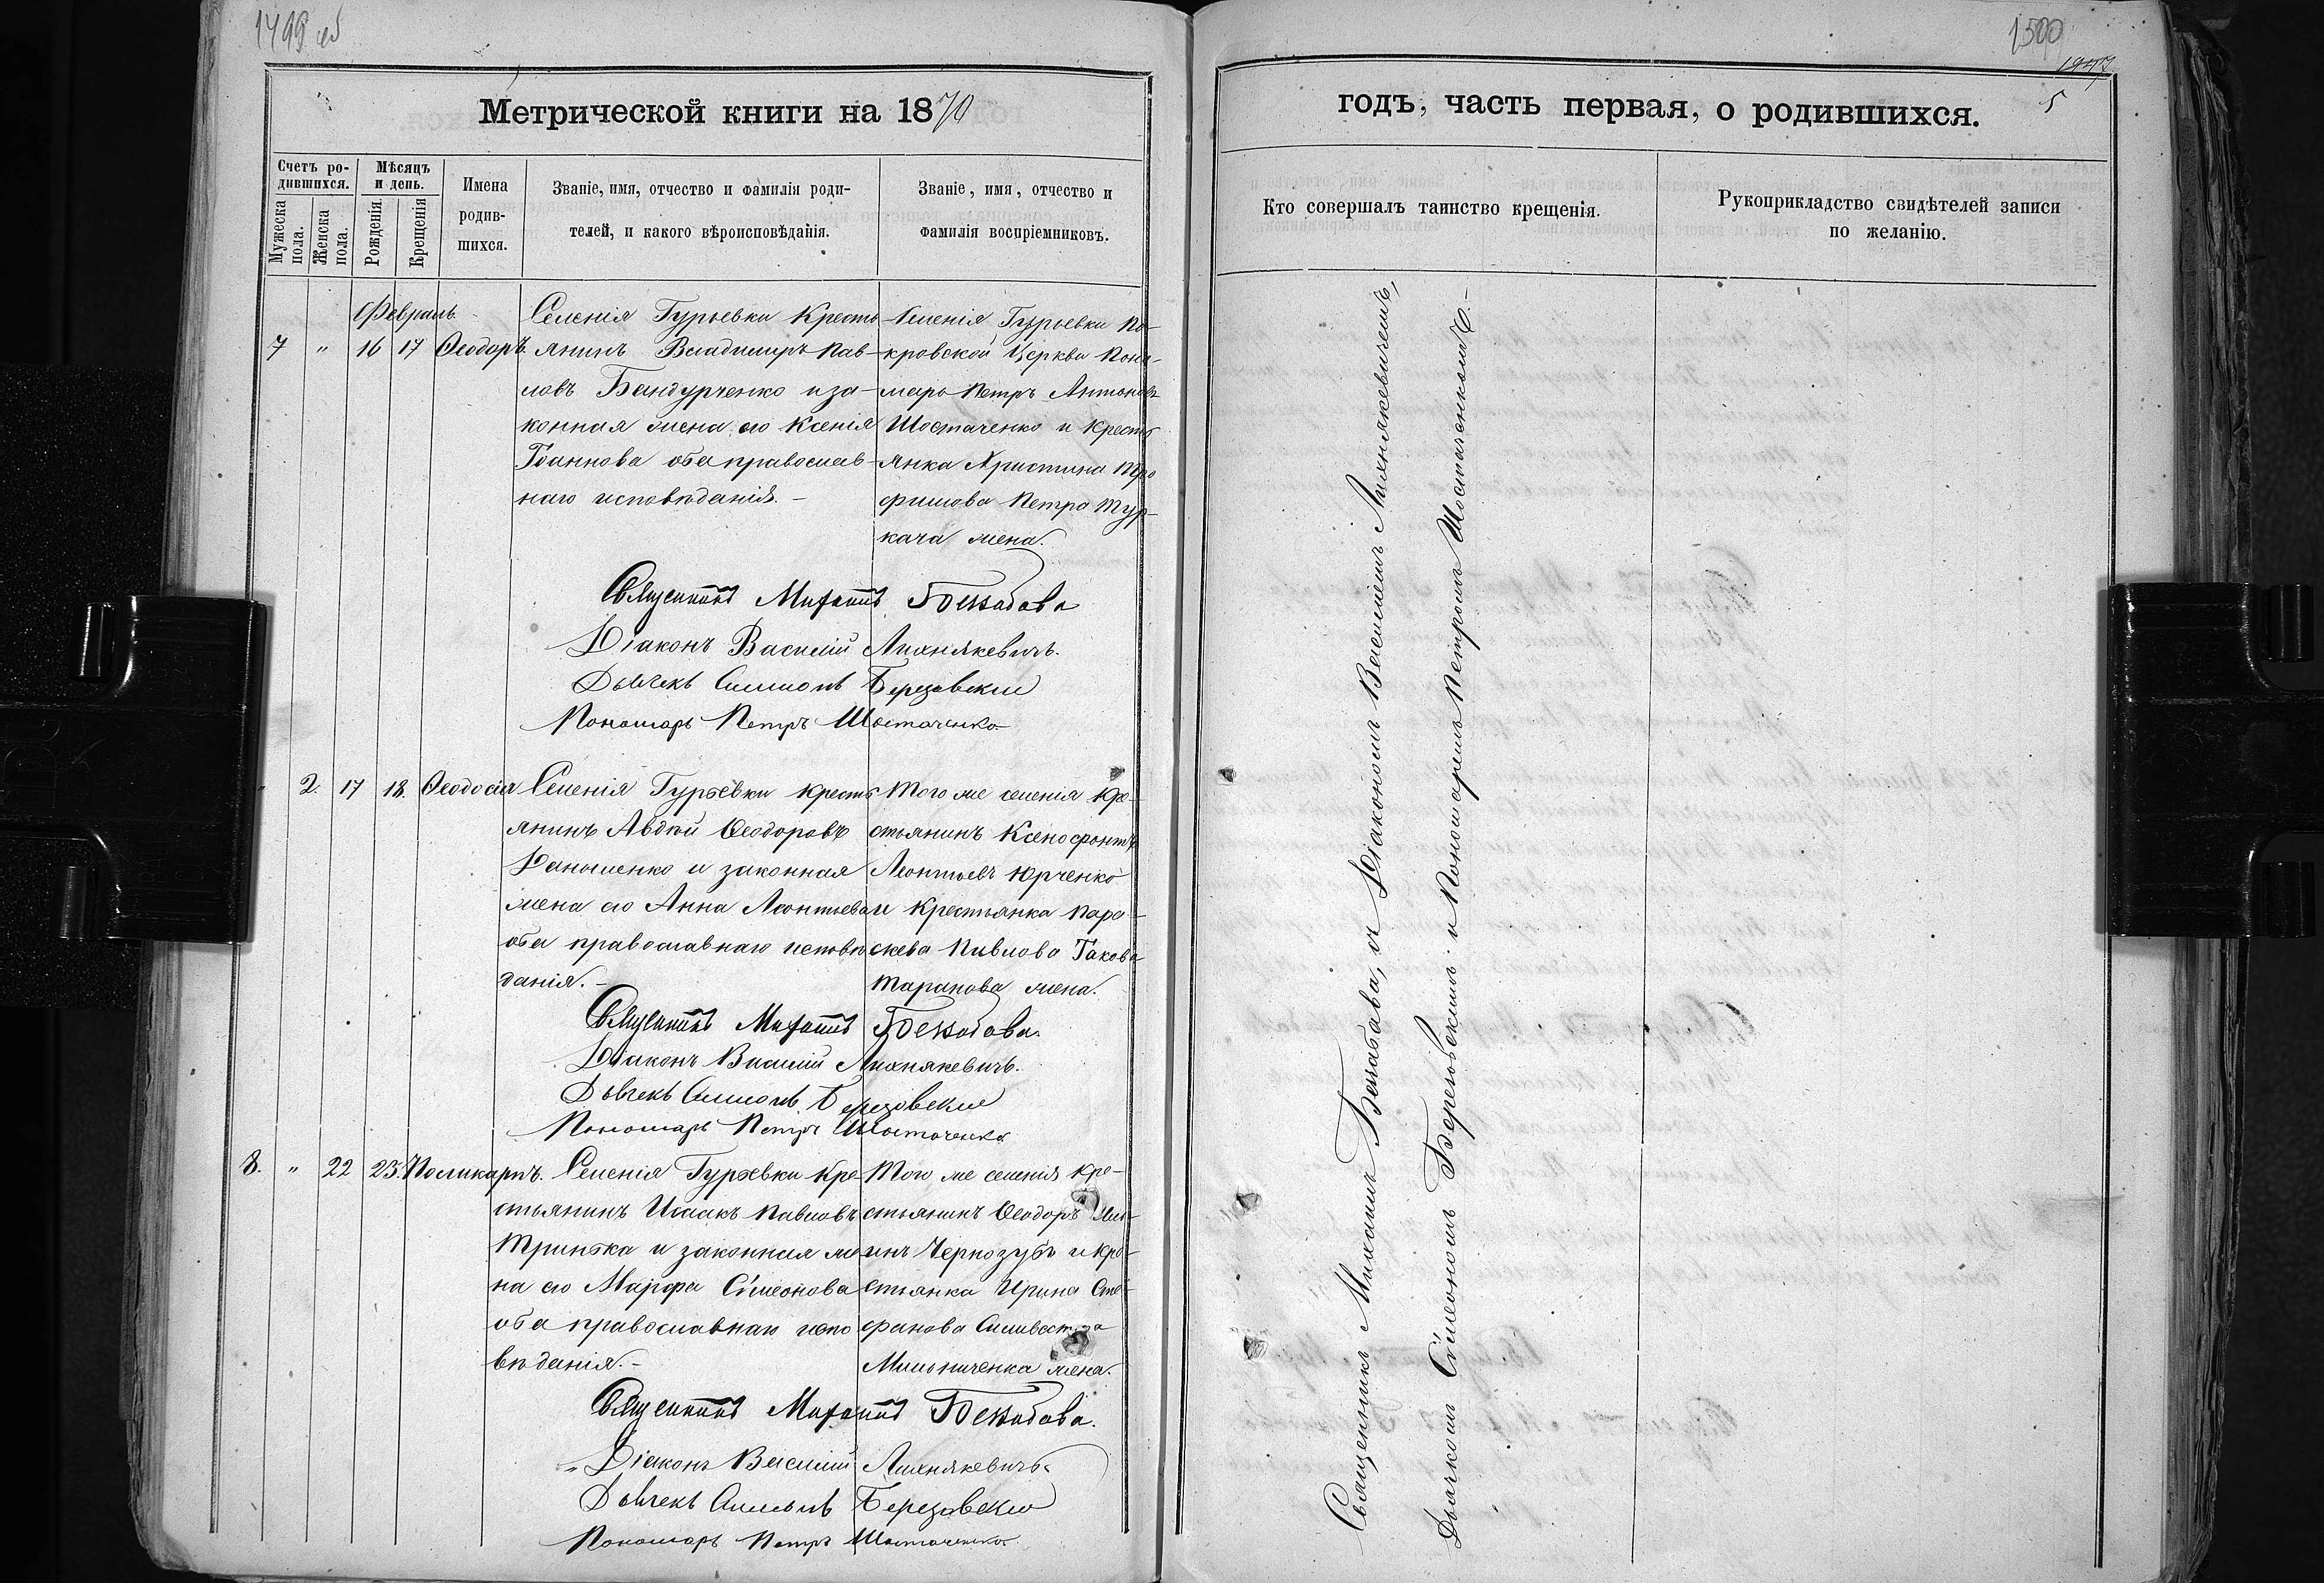 1499 об
1500
1947
5
Метрической книги на 1870
годъ, часть первая, о родившихся.
Счетъ ро-
дившихся.
Мужеска
пола.
Женска
пола.
Мѣсяцъ
и день.
Рожденія.
Крещенія
Имена
родив-
шихся.
Званіе, имя, отчество и фамилія роди-
телей, и какого вѣроисповѣданія.
Званіе, имя, отчество и
фамилія воспріемниковъ.
Кто совершалъ таинство крещенія.
Рукоприкладство свидѣтелей записи
по желанію.
Февраль
7 " 16 17 Ѳеодоръ.
Селенія Гурьевки Кресть
янинъ Владимиръ Пав-
ловъ Бандурченко и за-
конная жена его Ксенія
Іоаннова оба православ-
наго исповѣданія. -
Селенія Гурьевки По-
кровской Церкви Поно-
марь Петръ Антоновъ
Шостаченко и кресть
янка Христина Тро
фимова Петра Тур-
кача жена.
Священникъ Михаилъ Беззабава
Діаконъ Василій Лихнякевичъ.
Дьячекъ Симеонъ Березовскій
Пономарь Петръ Шостаченко
2. 17 18. Ѳеодосія
Селенія Гурьевки кресть
янинъ Авдій Ѳеодоровъ
Данышенко и законная
жена его Анна Леонтьева
оба православнаго исповѣ
данія. -
Того же селенія кре-
стьянинъ Ксенофонтъ
Леонтьевъ Юрченко
и крестьянка Пара-
скева Павлова Іакова
Таранова жена.
Священникъ Михаилъ Беззабава.
Діаконъ Василій Лихнякевичъ.
Дьячекъ Симеонъ Березовскій
Пономарь Петръ Шостаченко
8. " 22 23. Поликарпъ.
Селенія Гурьевки Кре-
стьянинъ Исаакъ Павловъ
Тринька и законная же
на его Марфа Сѵмеонова
оба православнаго испо
вѣданія. -
Того же селенія кре-
стьянинъ Ѳеодоръ Иль-
инъ Чернозубъ и кре-
стьянка Ирина Сте-
фанова Сильвестра
Мильниченка жена.
Священникъ Михаилъ Беззабава.
Діаконъ Василій Лихнякевичъ
Дьячекъ Симеонъ Березовскій
Пономарь Петръ Шостаченко
Священникъ Михаилъ Беззабава, съ Діакономъ Василіемъ Лихнякевичемъ,
Дьячкомъ Сѵмеономъ Березовскимъ и Пономаремъ Петромъ Шостаченкомъ. -